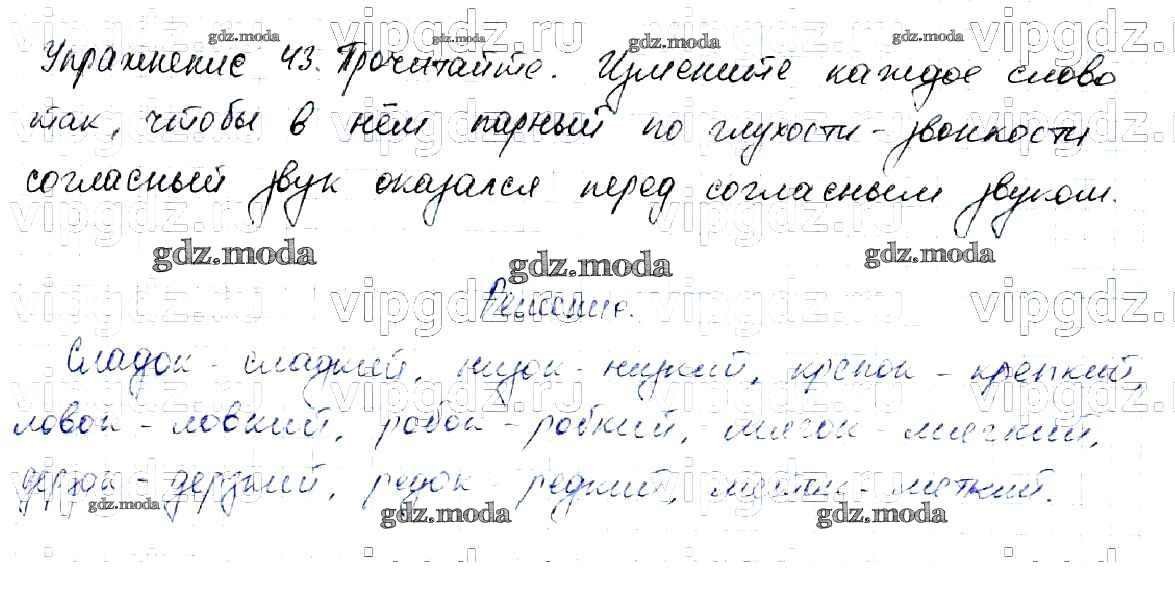 Упражнение 43. Прочитайте. Измените каждое слово
так, чтобы в нём парный по глухости-звонкости
согласный звук оказался перед согласным звуком.
Решение.
Сладок - сладкий, низок - низкий, крепок - крепкий,
ловок - ловкий, робок - робкий, мягок - мягкий,
дерзок - дерзкий, редок - редкий, меток - меткий.